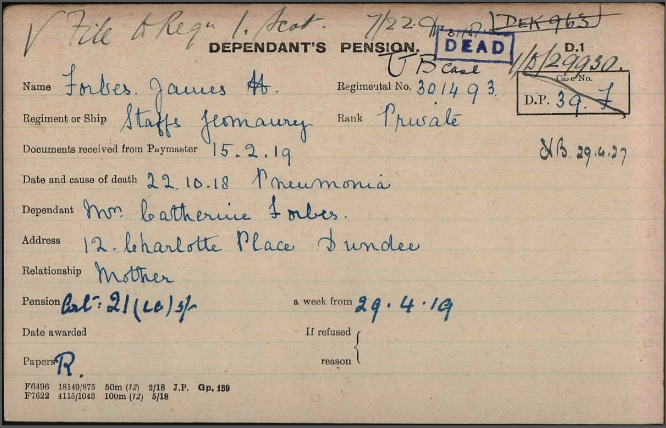 √ File to Regn 1. Scot. 7/22 9
DEAD
DEPENDANT'S PENSION. D.1
UB case 1/B/29930.
Name Forbes. James H. Regimental No. 301493 Case No.
D.P. 39. F
Regiment or Ship Staffs Yeomanry Rank Private
Documents received from Paymaster 15.2.19 29.4.27
Date and cause of death 22.10.18 Pneumonia
Dependant Mrs. Catherine Forbes.
Address 12. Charlotte Place Dundee
Relationship Mother
Pension 21 (1c) 5/- a week from 29.4.19
Date awarded If refused
Papers R. reason
F6496 18149/875 50m (12) 2/18 J.P. Gp. 159
F7622 4115/1043 100m (12) 5/18